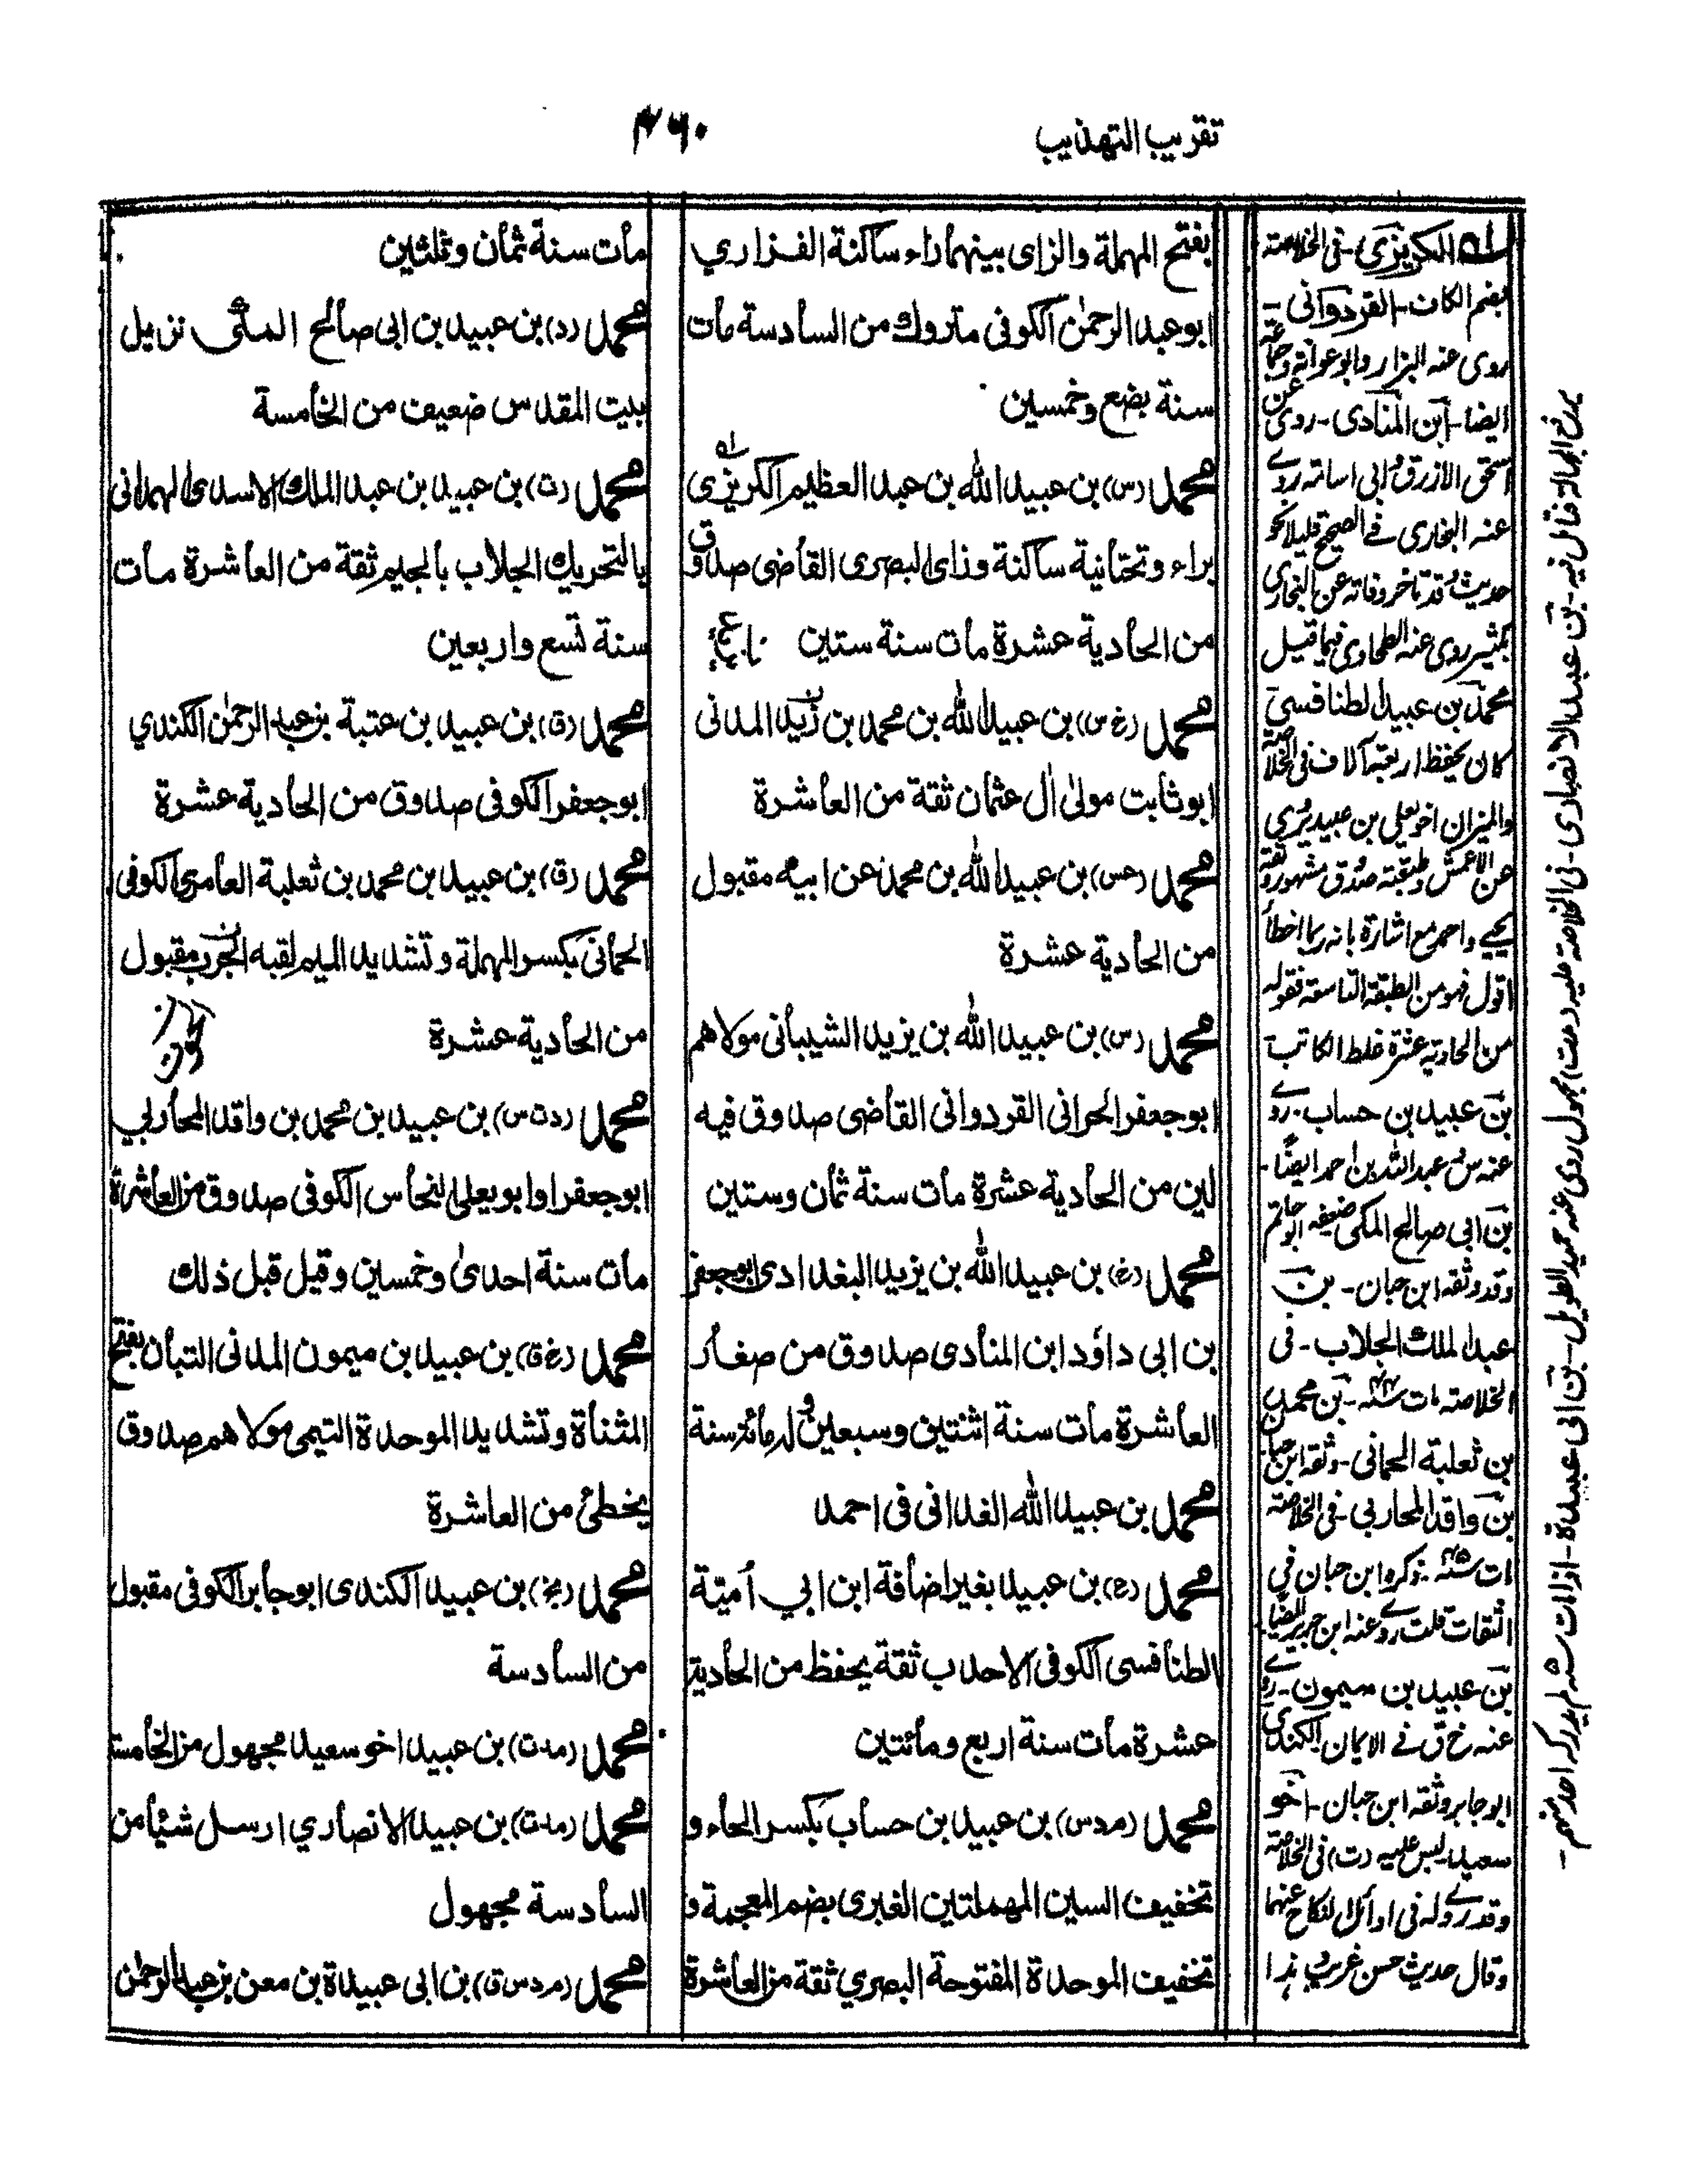 تقريب التهذيب
۴۶۰
بفتح المهملة والزاى بينهما راء ساكنة الفزاري
ابو عبد الرحمٰن الكوفى متروك من السادسة مات
سنة بضع وخمسين
محمد (س) بن عبيد الله بن عبد العظيم الكريزى
براء وتحتانية ساكنة وزاى البصرى القاضى صدوق
من الحادية عشرة مات سنة ستين
محمد (خ س) بن عبيد الله بن محمد بن زيد المدنى
ابو ثابت مولىٰ اٰل عثمان ثقة من العاشرة
محمد (عس) بن عبيد الله بن محمد عن ابيه مقبول
من الحادية عشرة
محمد (س) بن عبيد الله بن يزيد الشيبانى مولاهم
ابو جعفر الحرانى القردوانى القاضى صدوق فيه
لين من الحادية عشرة مات سنة ثمان وستين
محمد (خ) بن عبيد الله بن يزيد البغدادى ابو جعفر
بن ابى داؤد ابن المنادى صدوق من صغار
العاشرة مات سنة اثنتين وسبعين وله مائة سنة
محمد بن عبيد الله الغدانى فى احمد
محمد (ع) بن عبيد بغير اضافة ابن ابي أميّة
الطنافسى الكوفى الاحدب ثقة يحفظ من الحادية
عشرة مات سنة اربع ومائتين
محمد (مدس) بن عبيد بن حساب بكسر الحاء و
تخفيف السين المهملتين الغبرى بضم المعجمة و
تخفيف الموحدة المفتوحة البصري ثقة من العاشرة
مات سنة ثمان وثلثين
محمد (د) بن عبيد بن ابى صالح المكى نزيل
بيت المقدس ضعيف من الخامسة
محمد (ت) بن عبيد بن عبد الملك الاسدى الهمدانى
بالتحريك الجلاب بالجيم ثقة من العاشرة مات
سنة تسع واربعين
محمد (ق) بن عبيد بن عتبة بن عبد الرحمٰن الكندي
ابو جعفر الكوفى صدوق من الحادية عشرة
محمد (ق) بن عبيد بن محمد بن ثعلبة العامرى الكوفى
الحمانى بكسر المهملة وتشديد الميم لقبه الجرب مقبول
من الحادية عشرة
محمد (دت س) بن عبيد بن محمد بن واقد المحاربي
ابو جعفر او ابو يعلى النحاس الكوفى صدوق من العاشرة
مات سنة احدىٰ وخمسين وقيل قبل ذلك
محمد (خ ق) بن عبيد بن ميمون المدنى التبان بفتح
المثناة وتشديد الموحدة التيمى مولاهم صدوق
يخطئ من العاشرة
محمد (بخ) بن عبيد الكندى ابو جابر الكوفى مقبول
من السادسة
محمد (مدت) بن عبيد اخو سعيد مجهول من الخامسة
محمد (مدت) بن عبيد الانصاري ارسل شيئا من
السادسة مجهول
محمد (م د س ق) بن ابى عبيدة بن معن بن عبد الرحمٰن
الكريزى - فى الخلاصة
بضم الكاف - القردوانى -
روى عنه البزار وابو عوانة وجماعة
ايضا - ابن المنادى - روى عن
اسحق الازرق وابى اسامة روى
عنه البخارى فى الصحيح قليلا نحو
حديث وقد تاخر وفاته عن البخارى
بكثير روى عنه الطحاوى فيما قيل
محمد بن عبيد الطنافسى
كان يحفظ اربعة آلاف فى الخلاصة
والميزان اخو يعلى بن عبيد يروى
عن الاعمش وطبقته صدوق مشهور وثقه
يحيى واحمد مع اشارة بانه ربما اخطأ
اقول فهو من الطبقة التاسعة فقوله
من الحادية عشرة غلط الكاتب
بن عبيد بن حساب - روى
عنه س وعبد الله بن احمد ايضًا -
بن ابى صالح المكى ضعفه ابو حاتم
وقد وثقه ابن حبان - بن
عبد الملك الجلاب - فى
الخلاصة مات سنة - بن محمد
بن ثعلبة الحمانى - وثقه ابن حبان
بن واقد المحاربي - فى الخلاصة
مات سنة - ذكره ابن حبان في
الثقات قلت روى عنه ابن جرير ايضًا -
بن عبيد بن ميمون - روى
عنه خ ق فى الايمان - الكندى
ابو جابر وثقه ابن حبان - اخو
سعيد ليس عليه (ت) فى الخلاصة
وقد روى له فى اوائل النكاح عنهما
وقال حديث حسن غريب هذا
يرفع الجهالة فتأمل فيه - بن عبيد الانصارى - فى الخلاصة عليه (مدت) مجهول روى عنه حميد الطويل - بن ابى عبيدة - اذا مات سنة لم يدركه احد منهم -